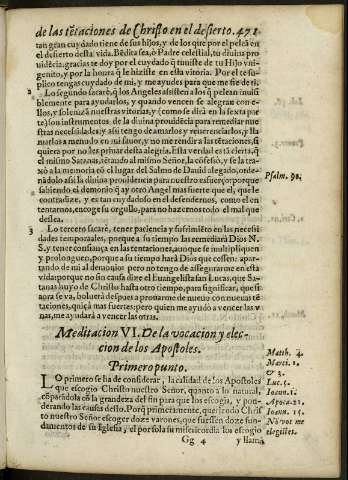 de las tētaciones de Christo en el desierto. 471
tan gran cuydado tiene de sus hijos, y de los que por el pelea en
el desierto desta vida. Bēdita sea, ò Padre celestial, tu diuina pro
uidēcia: gracias te doy por el cuydado q̄ tuuiste de tu Hijo vni-
genito, y por la honra q̄ le hiziste en esta vitoria. Por el te su-
plico tengas cuydado de mi, y me ayudes para que me fie de ti.
2 Lo segundo sacarè, q̄ los Angeles assisten a los q̄ pelean inuisi
blemente para ayudarlos, y quando vencen se alegran con e-
llos, y solenizā nuestras vitorias, y (como se dirà en la sexta par
te) son instrumentos de la diuina prouidēcia para remediar nue
stras necessidades: y assi tengo de amarlos y reuerenciarlos, y lla
marlos a menudo en mi fauor, y no me rendir a las tentaciones, si
quiera por no les priuar desta alegria. Esta verdad es tā cierta, q̄
el mismo Satanas, tētando al mismo Señor, la cōfessò, y se la tra-
xo a la memoria cō el lugar del Salmo de Dauid alegado, orde-
nādolo assi la diuina prouidencia para nuestro esfuerço: porque
sabiendo el demonio q̄ ay otro Angel mas fuerte que el, que le
contradize, y es tan cuydadoso en el defendernos, como el en
tentarnos, encoge su orgullo, para no hazernos todo el mal que
dessea.
Psalm. 90.
3 Lo tercero sacarè, tener paciencia y sufrimiēto en las necessi
dades temporales, porque a su tiempo las remediarà Dios N.
S. y tener confiança en las tentaciones, aunque se multipliquen
y prolonguen, porque a su tiempo harà Dios que cessen: apar-
tando de mi al demonio: pero no tengo de assegurarme en esta
vida: porque no sin causa dize el Euangelista san Lucas, que Sa-
tanas huyo de Christo hasta otro tiempo, para significar, que si
aora se va, boluerà despues a prouarme de nuevo con nueuas tē
taciones, quiçà mas fuertes: pero quien me ayudò a vencer las v
nas, me ayudarà a vencer las otras.
Meditacion VI. De la vocacion y elec-
cion de los Apostoles.
Primero punto.
LO primero se ha de considerar, la calidad de los Apostoles
que escogio Christo nuestro Señor, quanto a lo natural,
cōparādola cō la grandeza del fin para que los escogia, y pon-
derando las causas dello. Porq̄ primeramente, queriēdo Chris
to nuestro Señor escoger doze varones, que fuessen doze fun-
damentos de su Iglesia, el por sola su misericordia los escogio
Matth. 4.
Marci. 1.
& 3.
Luc. 5.
Ioann. 1.
Apoca. 21.
Ioann. 15.
Nō vos me
elegistis.
Gg 4
y llamò